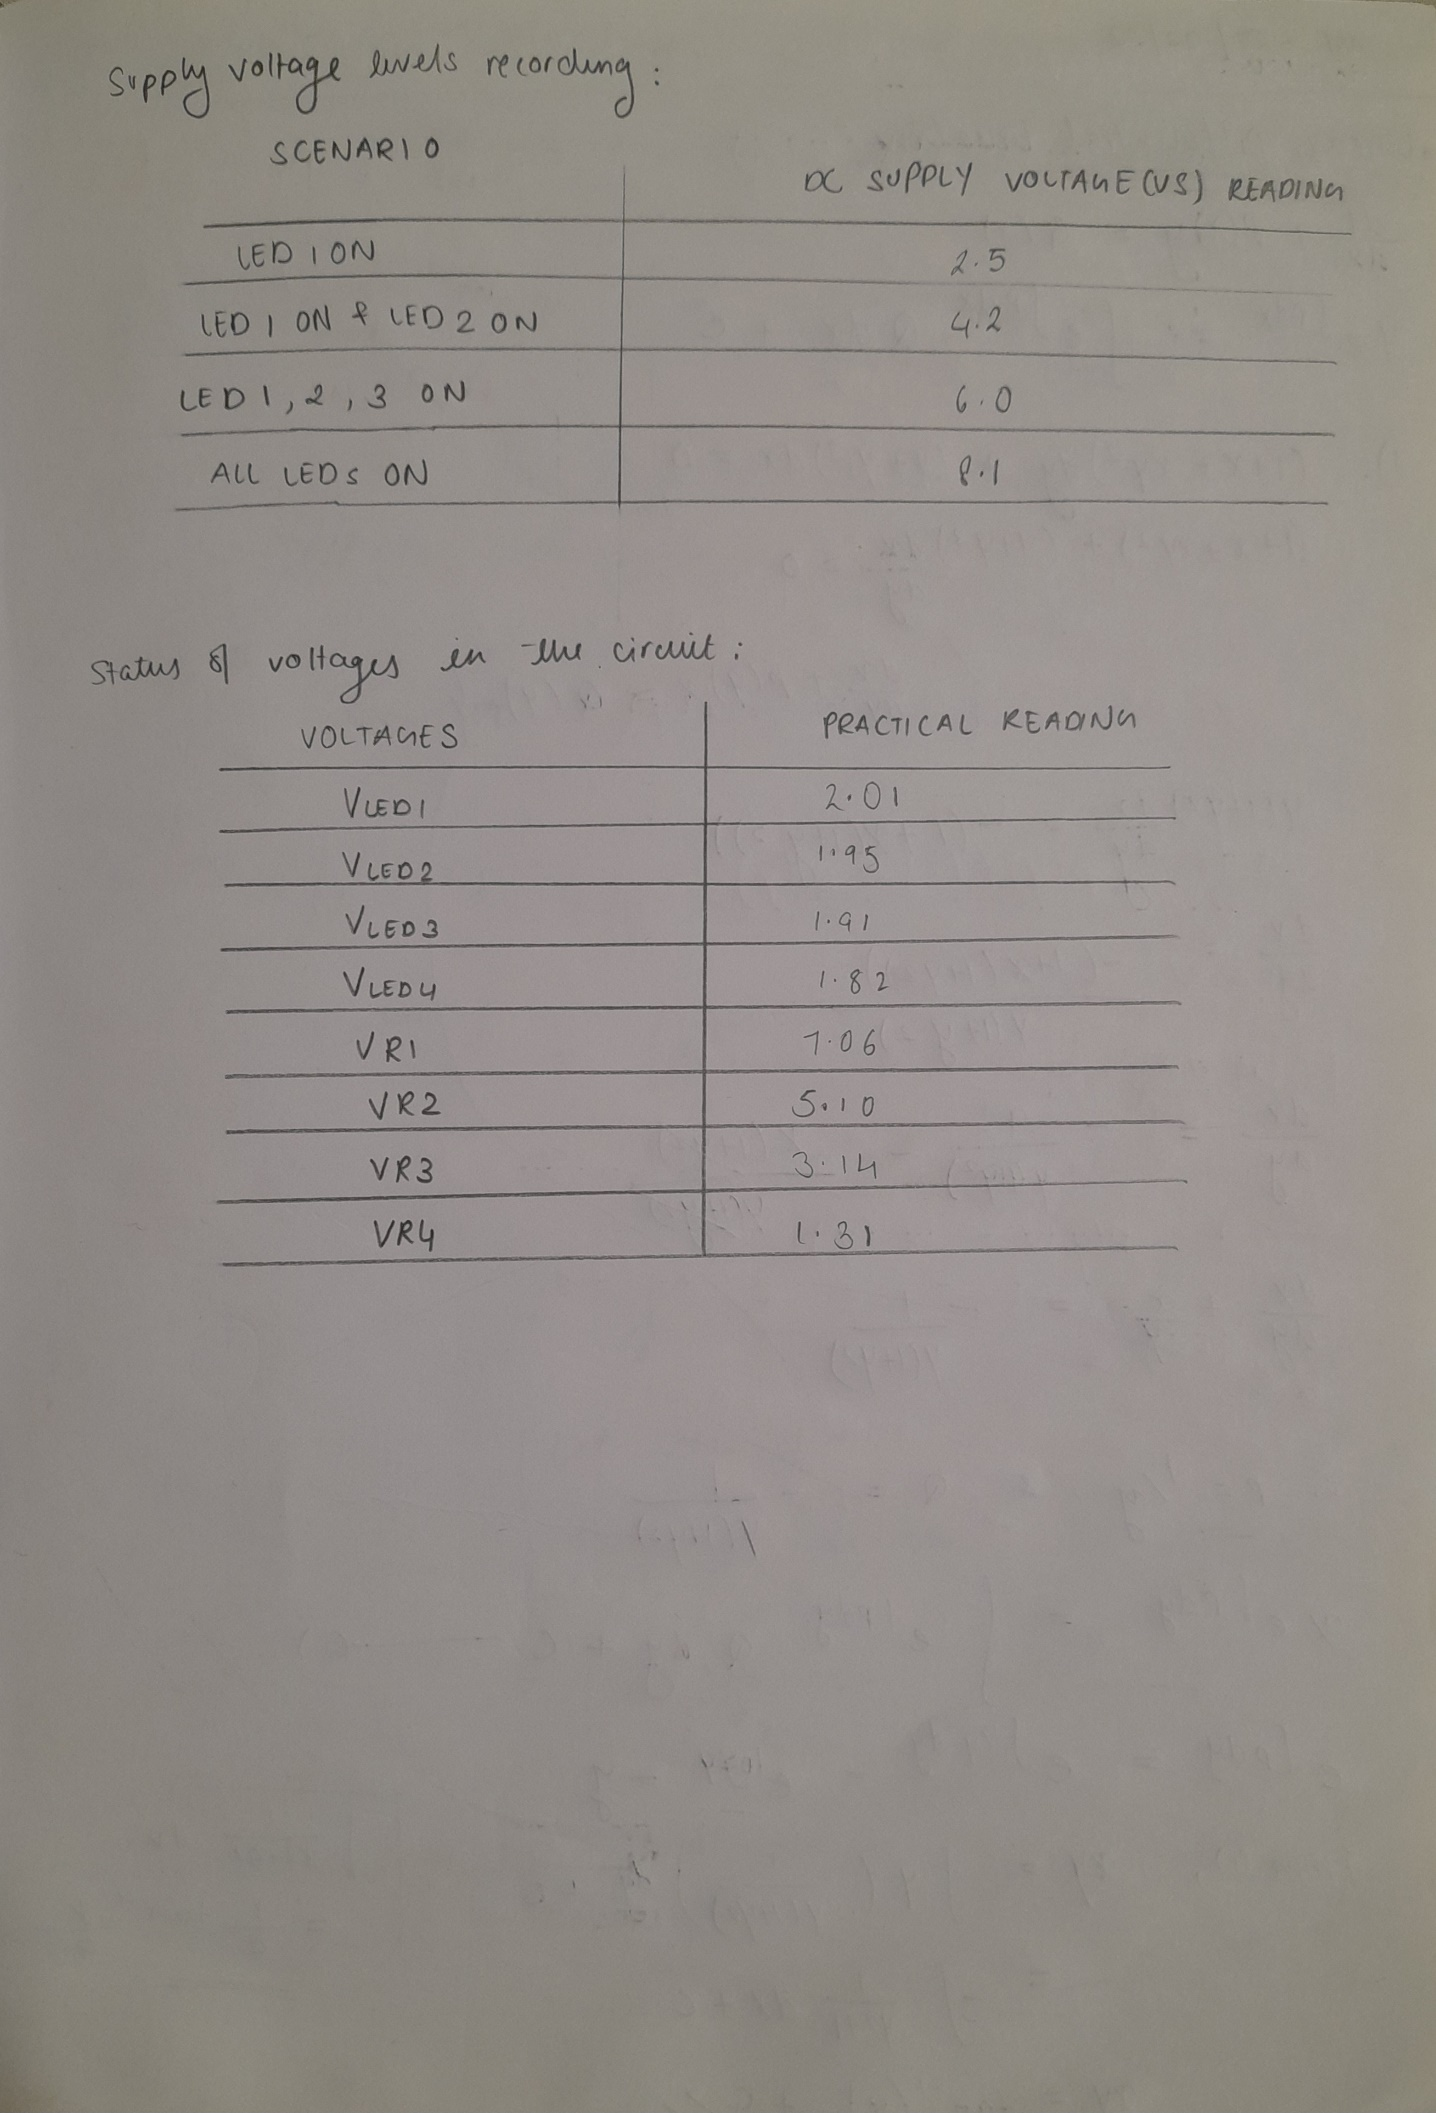 Supply voltage levels recording :
SCENARIO
DC SUPPLY VOLTAGE (VS) READING
LED 1 ON 2.5
LED 1 ON & LED 2 ON 4.2
LED 1, 2, 3 ON 6.0
ALL LEDs ON 8.1
Status of voltages in the circuit :
VOLTAGES PRACTICAL READING
VLED1 2.01
VLED2 1.95
VLED3 1.91
VLED4 1.82
VR1 7.06
VR2 5.10
VR3 3.14
VR4 1.31